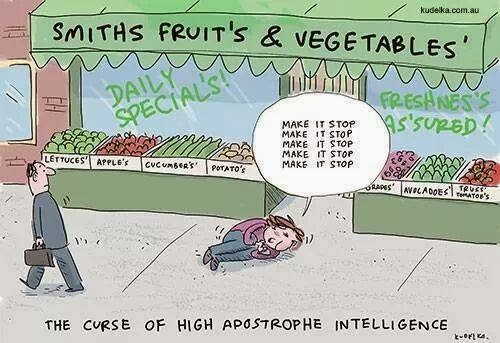 kudelka.com.au
SMITHS FRUIT'S & VEGETABLES'
DAILY
SPECIAL'S!
FRESHNES'S
AS'SURED!
MAKE IT STOP
MAKE IT STOP
MAKE IT STOP
MAKE IT STOP
MAKE IT STOP
LETTUCES'
APPLE'S
CUCUMBER'S'
POTATO'S
GRAPES'
AVOCADOES'
TRUSS'
TOMATOE'S
THE CURSE OF HIGH APOSTROPHE INTELLIGENCE
KUDELKA.